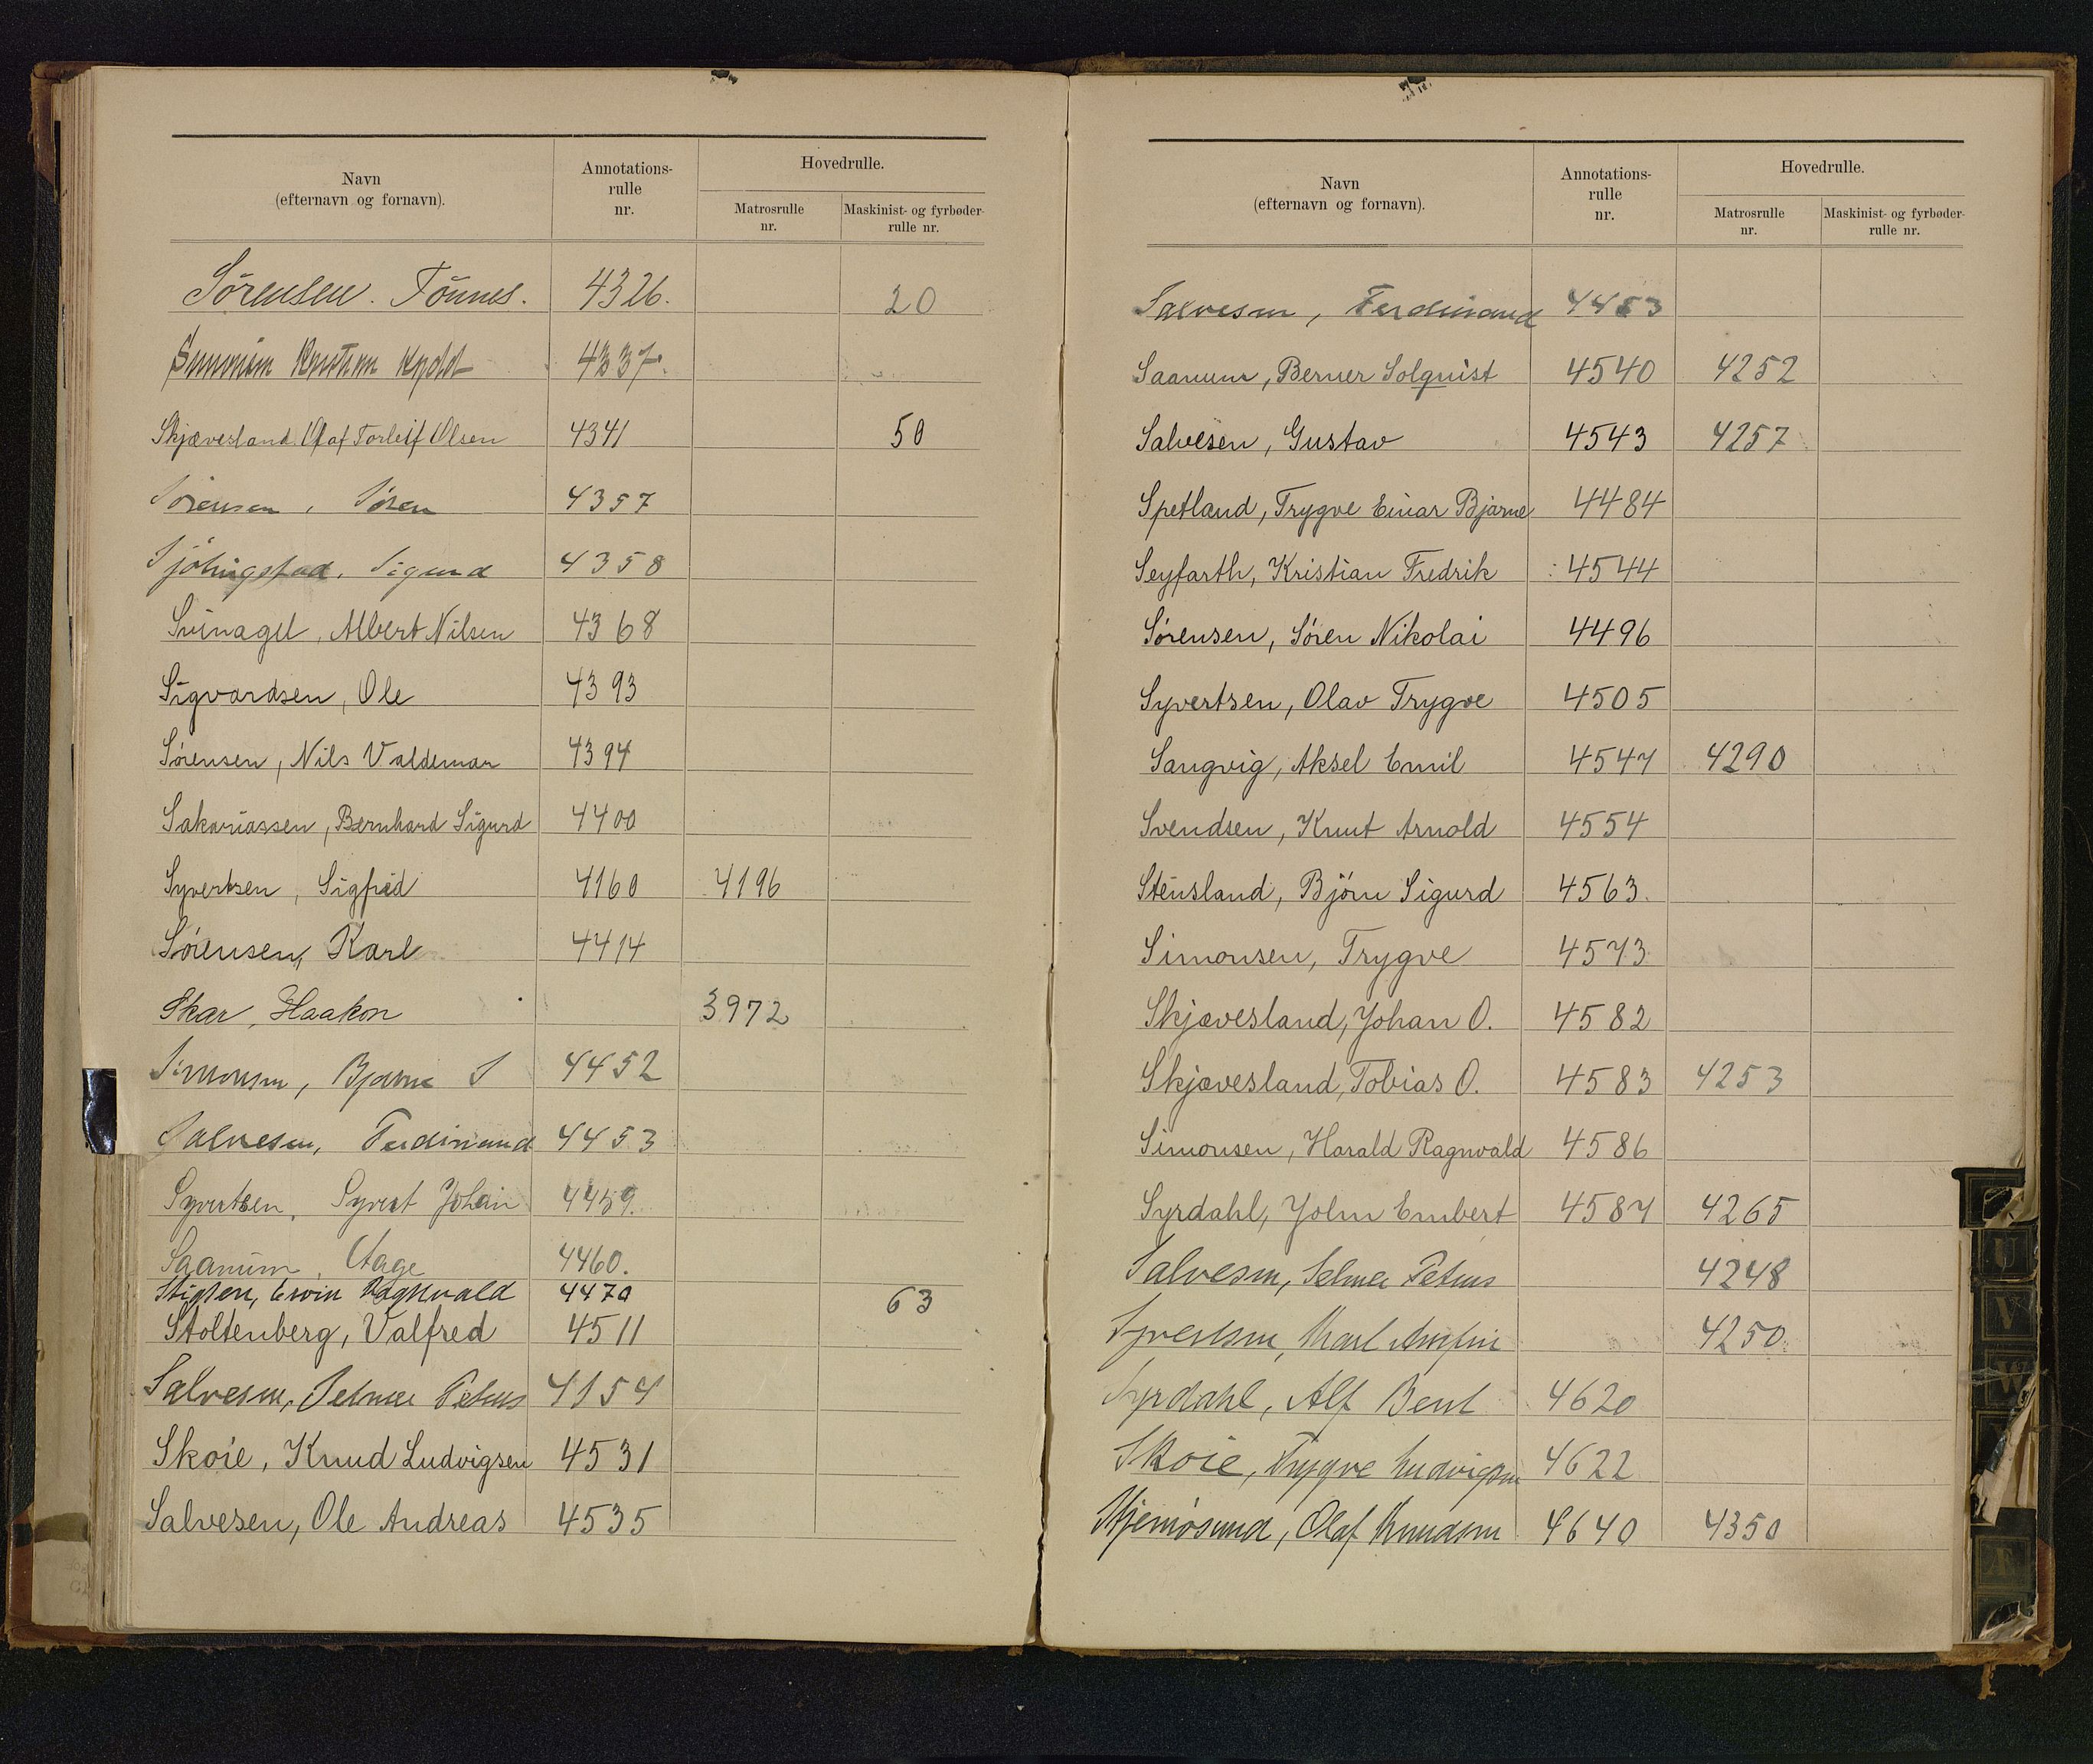 Navn
(efternavn og fornavn).
Annotations-
rulle
nr.
Hovedrulle.
Matrosrulle
nr.
Maskinist- og fyrbøder-
rulle nr.
Sørensen. Tönnes. 4326. 20
4337.
Skjævesland Olaf Torleif Olsen 4341 50
Sörensen, Sören 4357
Sjölingstad, Sigurd 4358
Svinagel, Albert Nilsen 4368
Sigvardsen, Ole 4393
Sörensen, Nils Valdemar 4394
Sakariassen, Bernhard Sigurd 4400
Syvertsen, Sigfred 4160 4196
Sörensen, Karl 4414
Skar, Haakon 3972
Simonsen, Bjarne S 4452
Salvesen, Ferdinand 4453
Syvertsen, Syvert Johan 4459.
Saanum, Aage 4460.
Stiglen, Erwin Ragnvald 4470 63
Stoltenberg, Valfred 4511
Salvesen, Selmer Petrus 4154
Skoie, Knud Ludvigsen 4531
Salvesen, Ole Andreas 4535
Navn
(efternavn og fornavn).
Annotations-
rulle
nr.
Hovedrulle.
Matrosrulle
nr.
Maskinist- og fyrbøder-
rulle nr.
Salvesen, Ferdinand 4453
Saanum, Berner Solquist 4540 4252
Salvesen, Gustav 4543 4257
Spetland, Trygve Einar Bjarne 4484
Seyfarth, Kristian Fredrik 4544
Sørensen, Søren Nikolai 4496
Syvertsen, Olav Trygve 4505
Sangvig, Aksel Emil 4547 4290
Svendsen, Knut Arnold 4554
Stensland, Björn Sigurd 4563.
Simonsen, Trygve 4573
Skjævesland, Johan O. 4582
Skjævesland, Tobias O. 4583 4253
Simonsen, Harald Ragnvald 4586
Syrdahl, John Embert 4587 4265
Salvesen, Selmer Petrus 4248
Syvertsen, Karl Arnfin 4250
Syrdahl, Alf Bent 4620
Skoie, Trygve Ludvigsen 4622
Skjernøsund, Olaf Knudsen 4640 4350
U
V
W